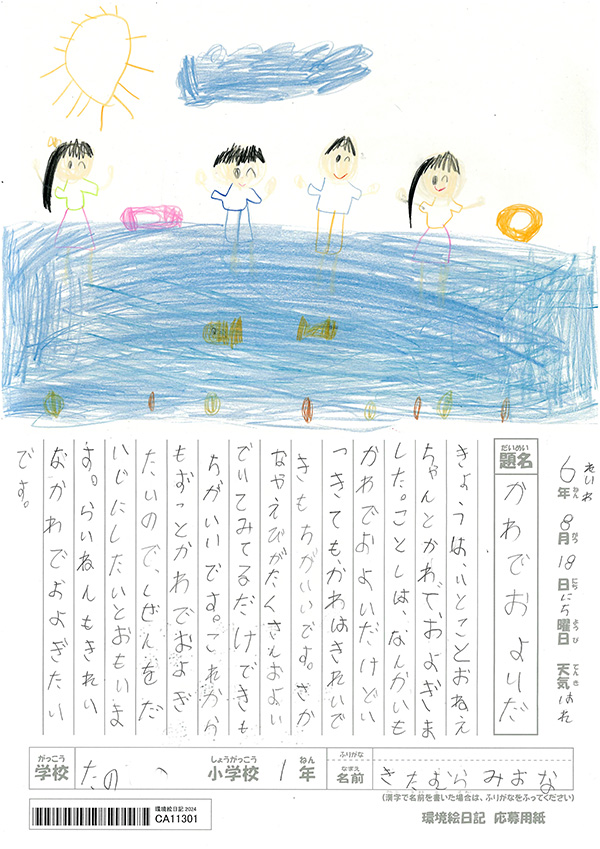 れいわ 6年 8月 18日 にち曜日 天気 はれ
ねん がつ にち ようび てんき
だいめい
題名 かわでおよいだ
きょうは、いとことおねえ
ちゃんとかわで、およぎま
した。ことしは、なんかいも
かわでおよいだけどい
つきても、かわはきれいで
きもちがいいです。さか
なやえびがたくさんおよい
でいてみてるだけできも
ちがいいです。これから
もずっとかわでおよぎ
たいので、しぜんをだ
いじにしたいとおもいま
す。らいねんもきれい
なかわでおよぎたい
です。
がっこう しょうがっこう ねん ふりがな
学校 たの 小学校 1年 なまえ 名前 きたむら みおな
(漢字で名前を書いた場合は、ふりがなをふってください)
環境絵日記 2024
CA11301
環境絵日記 応募用紙